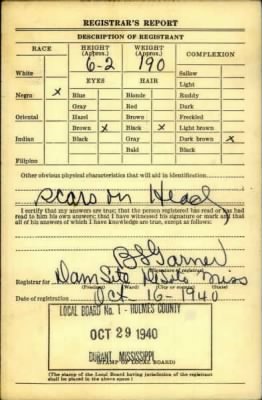 REGISTRAR'S REPORT
DESCRIPTION OF REGISTRANT
RACE HEIGHT (Approx.) WEIGHT (Approx.) COMPLEXION
6-2 190
White Sallow
EYES HAIR Light
Negro x Blue Blonde Ruddy
Gray Red Dark
Oriental Hazel Brown Freckled
Brown x Black x Light brown
Indian Black Gray Dark brown x
Bald Black
Filipino
Other obvious physical characteristics that will aid in identification
Scars on Head
I certify that my answers are true; that the person registered has read or has had
read to him his own answers; that I have witnessed his signature or mark and that
all of his answers of which I have knowledge are true, except as follows:
Garner
(Signature of registrar)
Registrar for Miss
(Precinct) (Ward) (City or county) (State)
Date of registration Oct-16-1940
LOCAL BOARD No. 1 - HOLMES COUNTY
OCT 29 1940
DURANT, MISSISSIPPI
(STAMP OF LOCAL BOARD)
(The stamp of the Local Board having jurisdiction of the registrant
shall be placed in the above space.)